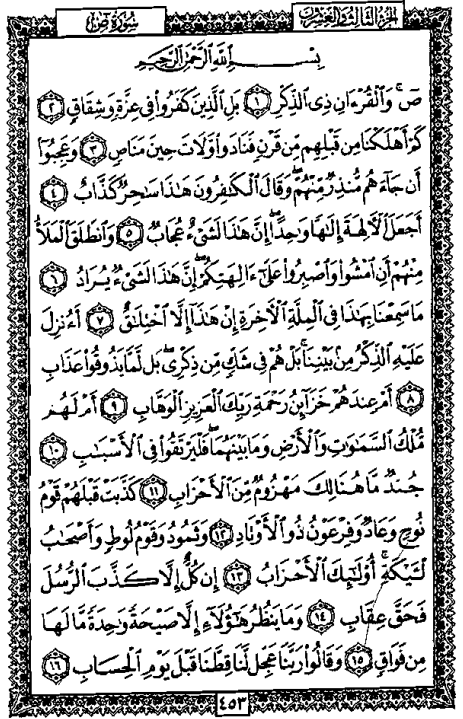 الجزء الثالث والعشرون
سورة ص
بِسْمِ اللَّهِ الرَّحْمَٰنِ الرَّحِيمِ
صٓ ۚ وَالْقُرْءَانِ ذِى الذِّكْرِ ١ بَلِ الَّذِينَ كَفَرُوا فِى عِزَّةٍ وَشِقَاقٍ ٢
كَمْ أَهْلَكْنَا مِن قَبْلِهِم مِّن قَرْنٍ فَنَادَوا وَّلَاتَ حِينَ مَنَاصٍ ٣ وَعَجِبُوٓا
أَن جَآءَهُم مُّنذِرٌ مِّنْهُمْ ۖ وَقَالَ الْكَٰفِرُونَ هَٰذَا سَٰحِرٌ كَذَّابٌ ٤
أَجَعَلَ الْءَالِهَةَ إِلَٰهًا وَٰحِدًا ۖ إِنَّ هَٰذَا لَشَىْءٌ عُجَابٌ ٥ وَانطَلَقَ الْمَلَأُ
مِنْهُمْ أَنِ امْشُوا وَاصْبِرُوا عَلَىٰٓ ءَالِهَتِكُمْ ۖ إِنَّ هَٰذَا لَشَىْءٌ يُرَادُ ٦
مَا سَمِعْنَا بِهَٰذَا فِى الْمِلَّةِ الْءَاخِرَةِ إِنْ هَٰذَآ إِلَّا اخْتِلَٰقٌ ٧ أَءُنزِلَ
عَلَيْهِ الذِّكْرُ مِنۢ بَيْنِنَا ۚ بَلْ هُمْ فِى شَكٍّ مِّن ذِكْرِى ۖ بَل لَّمَّا يَذُوقُوا عَذَابِ
٨ أَمْ عِندَهُمْ خَزَآئِنُ رَحْمَةِ رَبِّكَ الْعَزِيزِ الْوَهَّابِ ٩ أَمْ لَهُم
مُّلْكُ السَّمَٰوَٰتِ وَالْأَرْضِ وَمَا بَيْنَهُمَا ۖ فَلْيَرْتَقُوا فِى الْأَسْبَٰبِ ١٠
جُندٌ مَّا هُنَالِكَ مَهْزُومٌ مِّنَ الْأَحْزَابِ ١١ كَذَّبَتْ قَبْلَهُمْ قَوْمُ
نُوحٍ وَعَادٌ وَفِرْعَوْنُ ذُو الْأَوْتَادِ ١٢ وَثَمُودُ وَقَوْمُ لُوطٍ وَأَصْحَٰبُ
لْـَٔيْكَةِ ۚ أُولَٰٓئِكَ الْأَحْزَابُ ١٣ إِن كُلٌّ إِلَّا كَذَّبَ الرُّسُلَ
فَحَقَّ عِقَابِ ١٤ وَمَا يَنظُرُ هَٰٓؤُلَآءِ إِلَّا صَيْحَةً وَٰحِدَةً مَّا لَهَا
مِن فَوَاقٍ ١٥ وَقَالُوا رَبَّنَا عَجِّل لَّنَا قِطَّنَا قَبْلَ يَوْمِ الْحِسَابِ ١٦
٤٥٣